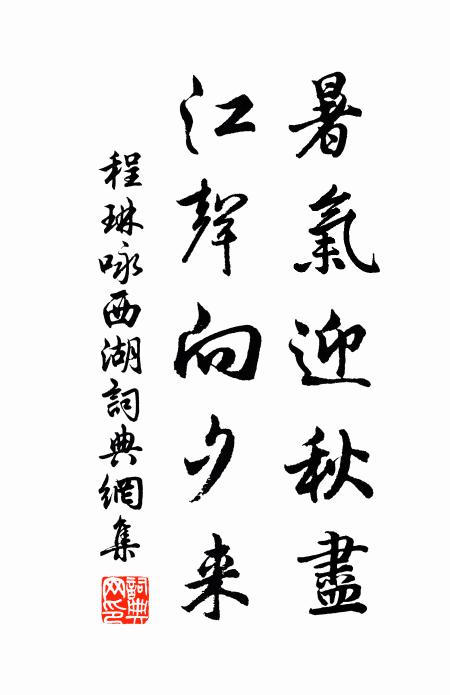 暑氣迎秋盡
江聲向夕来
程琳咏西湖詞典網集
詞典網印